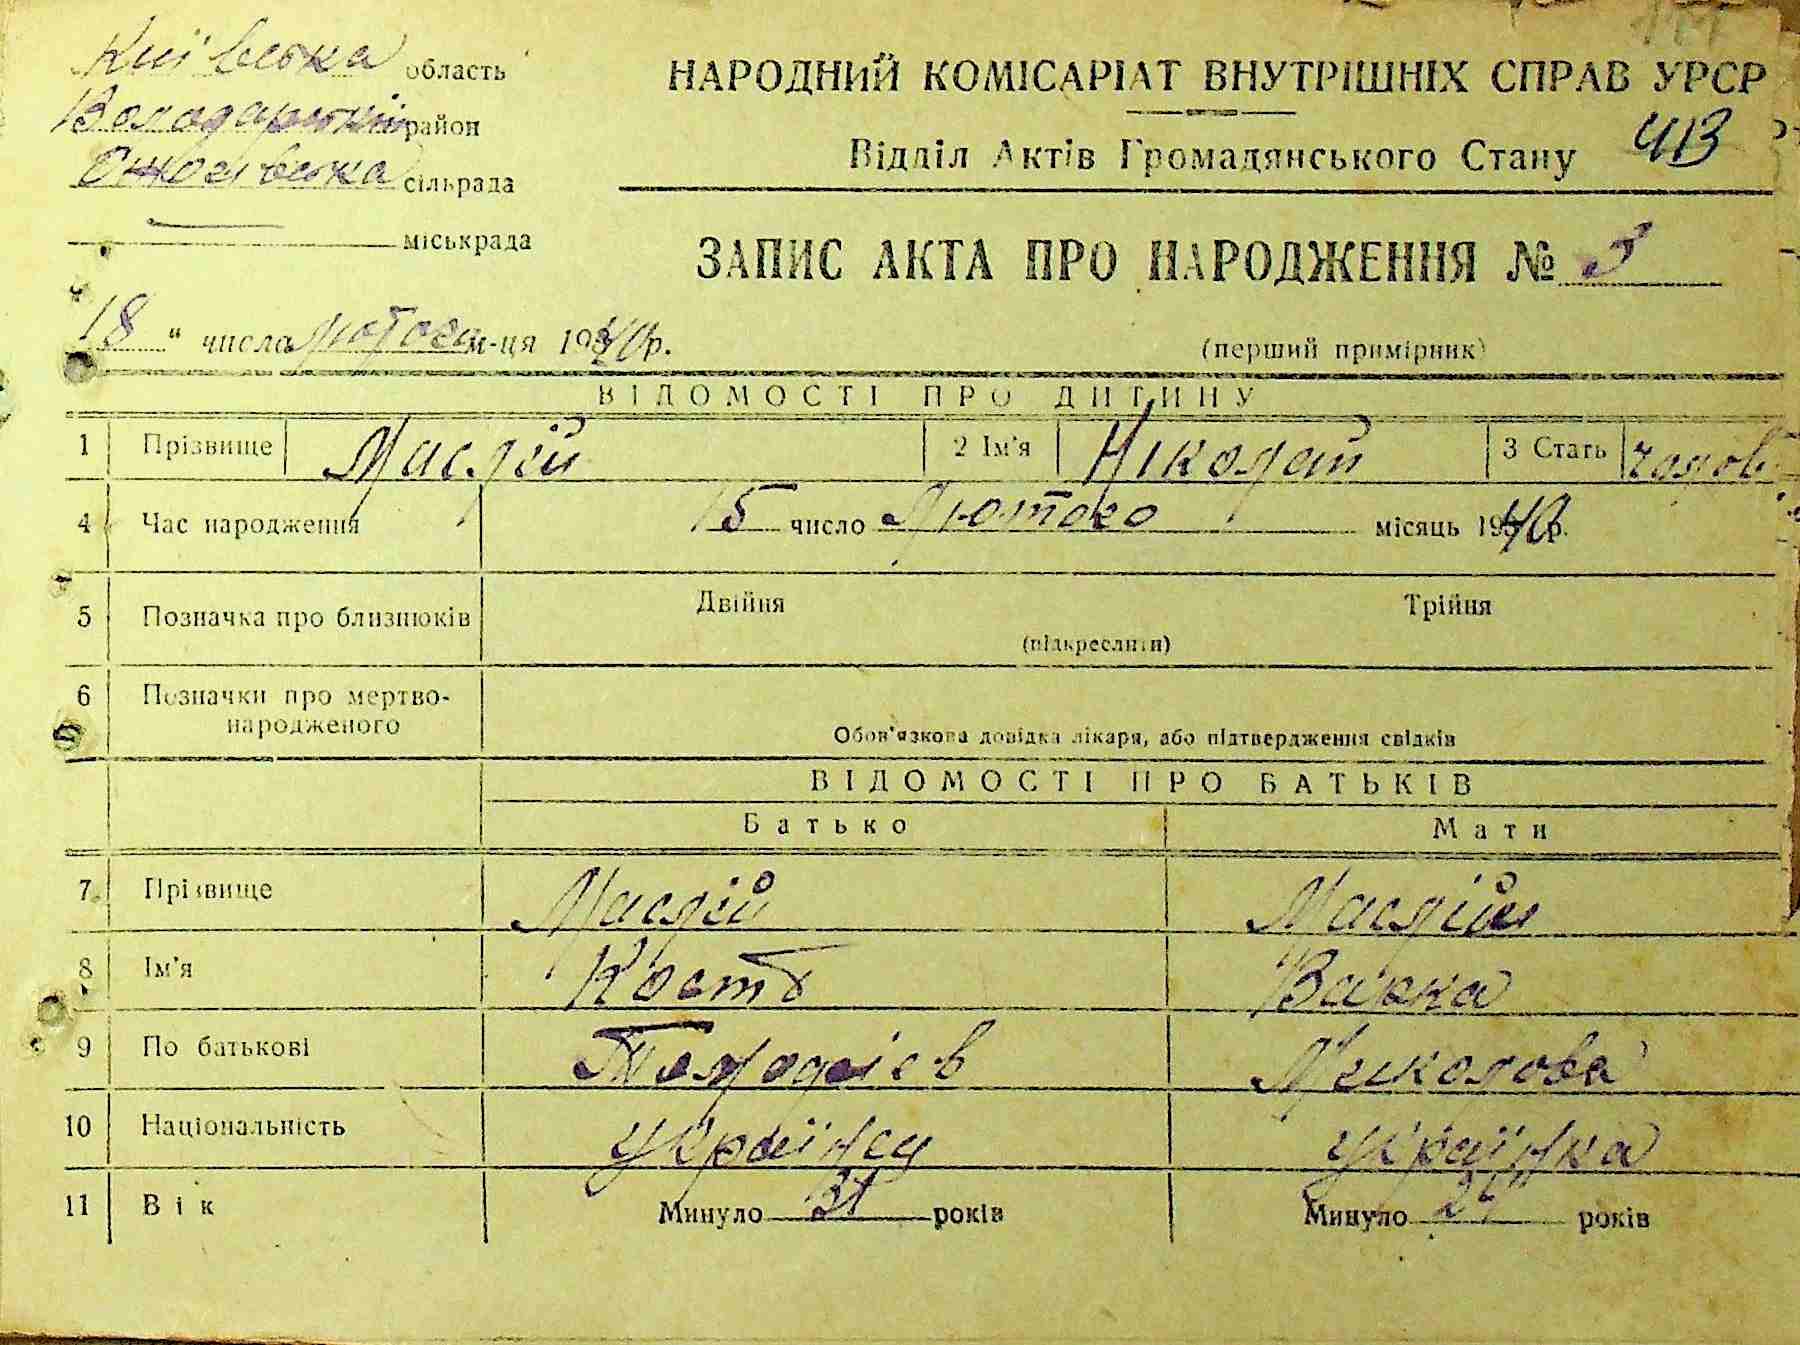 Київська область
Володарський район
сільрада
міськрада
НАРОДНИЙ КОМІСАРІАТ ВНУТРІШНІХ СПРАВ УРСР
Відділ Актів Громадянського Стану 413
ЗАПИС АКТА ПРО НАРОДЖЕННЯ № 3
"18" числа лютого м-ця 1940 р.
(перший примірник)
ВІДОМОСТІ ПРО ДИТИНУ
1 Прізвище Маслій 2 Ім'я Ніколай 3 Стать чолов
4 Час народження 15 число Лютого місяць 1940 р.
5 Позначка про близнюків Двійня Трійня
(підкреслити)
6 Позначки про мертво-
народженого
Обов'язкова довідка лікаря, або підтвердження свідків
ВІДОМОСТІ ПРО БАТЬКІВ
Батько Мати
7 Прізвище Маслій Маслій
8 Ім'я Кость Варка
9 По батькові Миколова
10 Національність українец українка
11 Вік Минуло 31 років Минуло 29 років